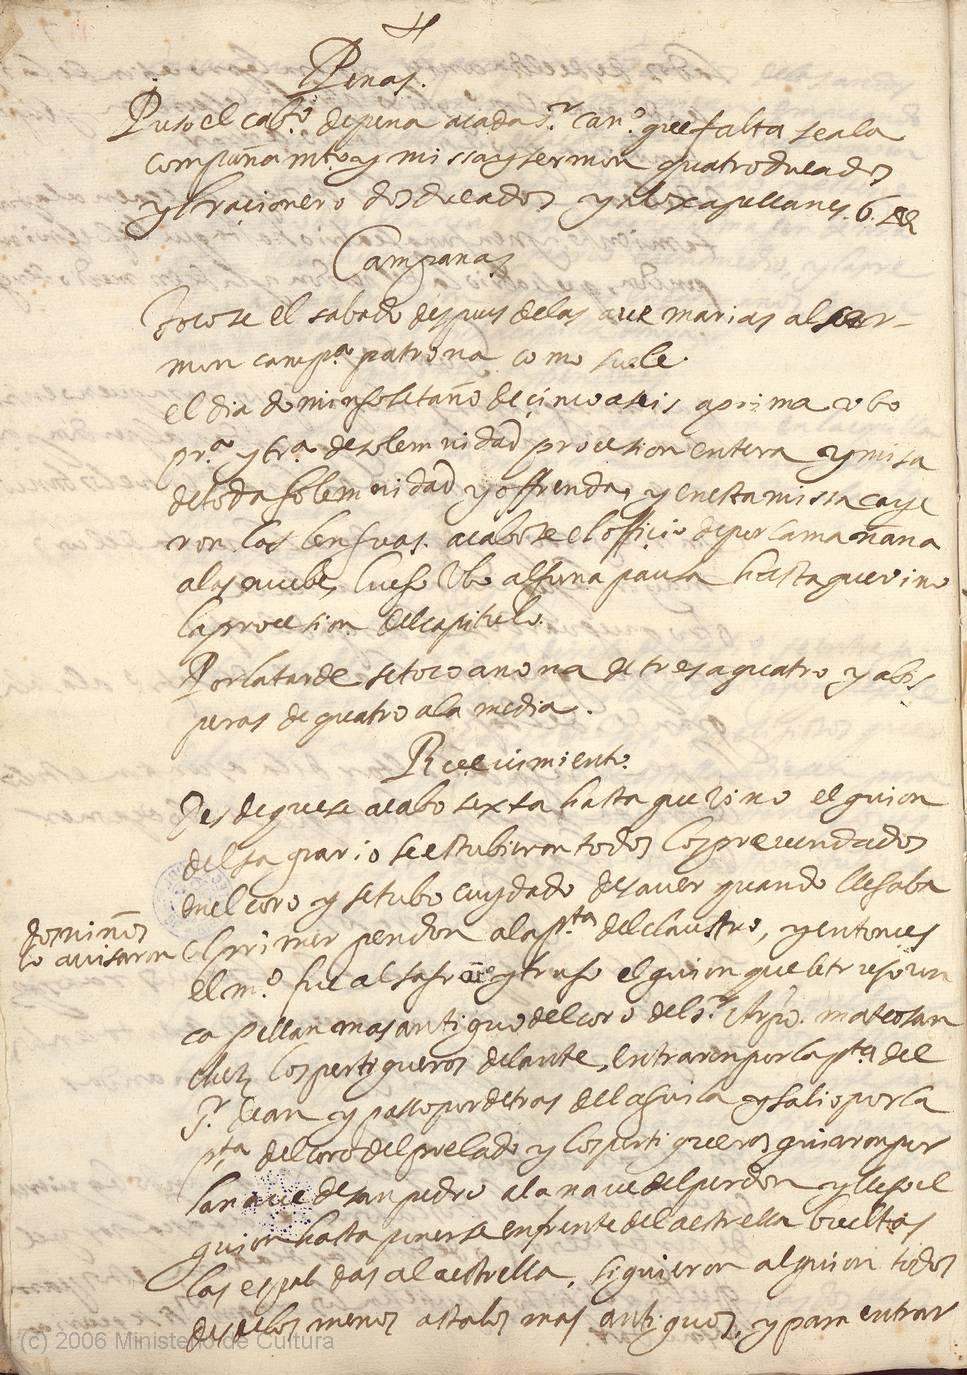 Penas.
Puso el cabº. de pena a cada Sr. canº. que falta se a la
compañamtº y missa y sermon quatro ducados
y al racionero dos ducados y a los capellanes. 6. RR
Campanas
Tocose el sabado despues de las ave marias al ser-
mon campª patrona como suele
el dia domingo letaño de cinco a seis a prima vbo
prª. y trª. de solemnidad procesion entera y misa
de toda solemnidad y offrenda, y en esta missa caye
ron las lenguas. acabose el officio de por la mañana
a las nuebe, luego Vbo alguna pausa hasta que vino
la procesion del capitulo.
Por la tarde se toco a nona de tres a quatro y a bis
peras de quatro a la media.
Recevimiento.
Desde que se acabo sexta hasta que vino el guion
del sagrario se estubieron todos los prevendados
en el coro y se tubo cuydado de saver quando llegaba
dos niños
lo avisaron
el primer pendon a la ptª del claustro, y entonces
el mº. fue al sagrº y trujo el guion que le trujo un
capellan mas antiguo del coro del Sr. Arpo. mateo san
chez, los pertigueros delante, entraron por la ptª del
Sr. Dean y passo por detras del aguila y salio por la
ptª del coro del prelado y los pertigueros guiaron por
la nave de san pedro a la nave del perdon y llego el
guion hasta ponerse enfrente de la estrella bueltas
las espaldas a la estrella, siguieron al guion todos
desde los menos a los mas antiguos, y para entrar
(c) 2006 Ministerio de Cultura